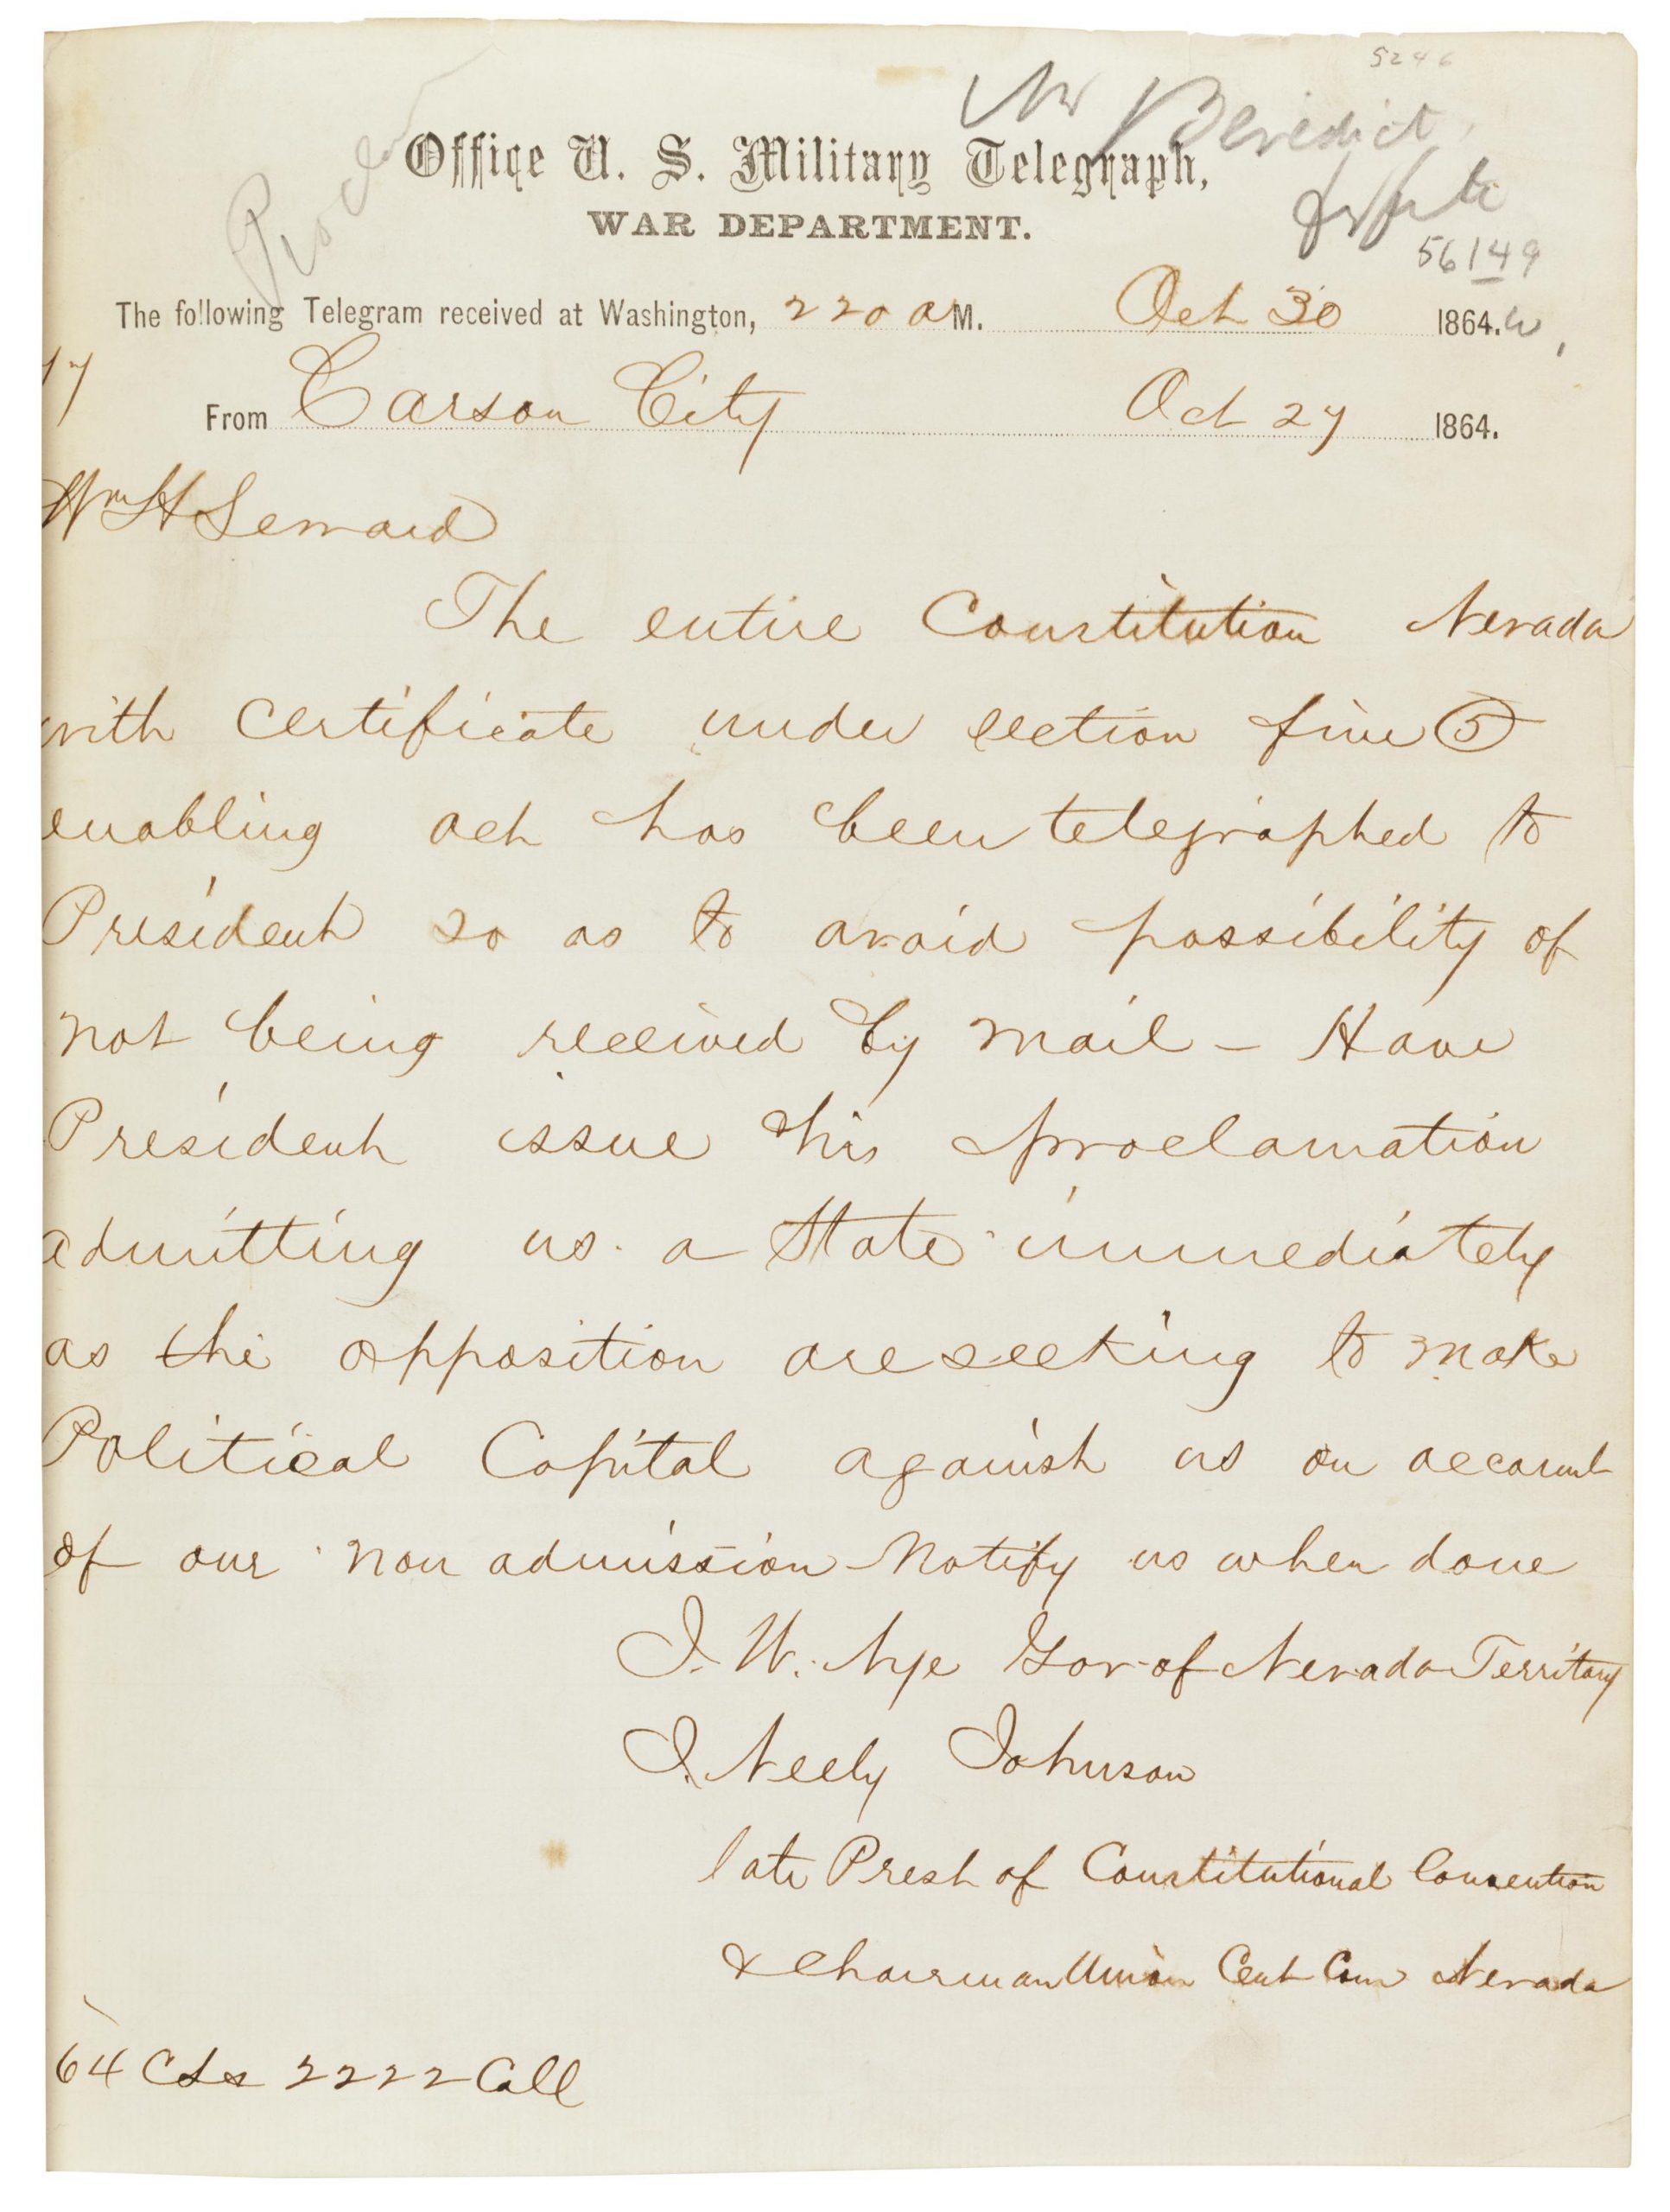 5246
Mr Benedict,
Office U. S. Military Telegraph,
WAR DEPARTMENT.
56149
The following Telegram received at Washington, 2 20 a M. Oct 30 1864.
17
From Carson City Oct 27 1864.
Wm H Seward
The entire Constitution Nevada
with certificate under section five (5)
enabling act has been telegraphed to
President so as to avoid possibility of
not being received by mail – Have
President issue his proclamation
admitting us a State immediately
as the opposition are seeking to make
Political Capital against us on account
of our non admission – Notify us when done
J. W. Nye Gov of Nevada Territory
J. Neely Johnson
late Prest of Constitutional Convention
& Chairman Union Cent Com Nevada
64 Cts 2222 Call